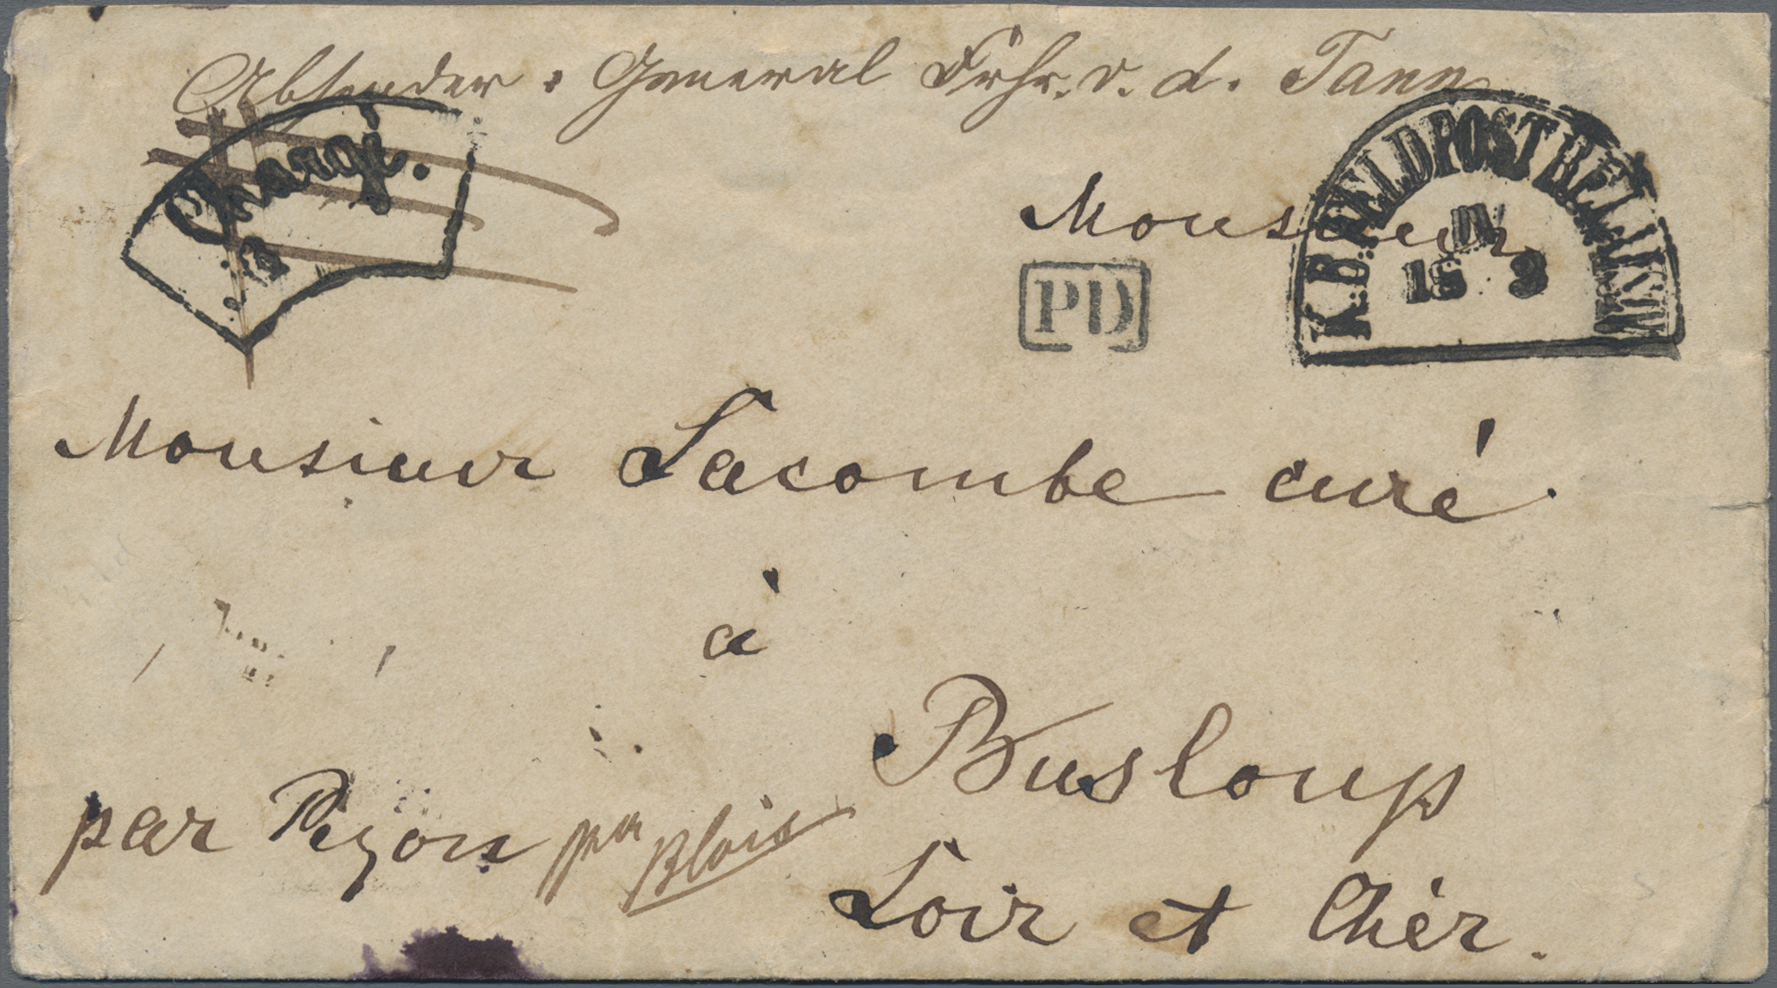 Absender: General Frhr. v. d. Tann
Chargé.
Monsieur
K.B. FELDPOST RELAIS
IV
18 3
PD
Monsieur Lacombe curé
à
Busloup
par Pezou par Blois
Loir et Chér.